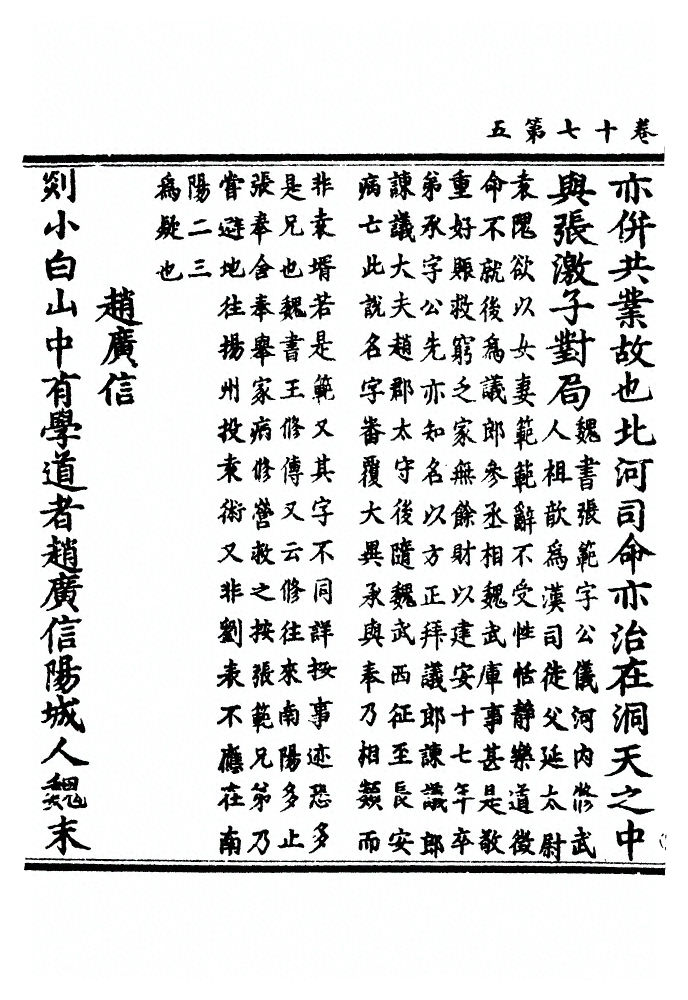 卷十七第五
亦併共業故也北河司命亦治在洞天之中
與張激子對局
魏書張範字公儀河內修武
人祖歆為漢司徒父延太尉
袁隗欲以女妻範範辭不受性恬靜樂道徵
命不就後為議郎參丞相魏武庫事甚是敬
重好賑救窮乏家無餘財以建安十七年卒
弟承字公先亦知名以方正拜議郎諫議郎
諫議大夫趙郡太守後隨魏武西征至長安
病亡此說名字番覆大異承與奉乃相類而
非袁壻若是範又其字不同詳按事迹恐多
是兄也魏書王修傳又云修往來南陽多止
張奉舍奉舉家病修營救之按張範兄弟乃
嘗避地往揚州投袁術又非劉表不應在南
陽二三
為疑也
趙廣信
剡小白山中有學道者趙廣信陽城人魏末